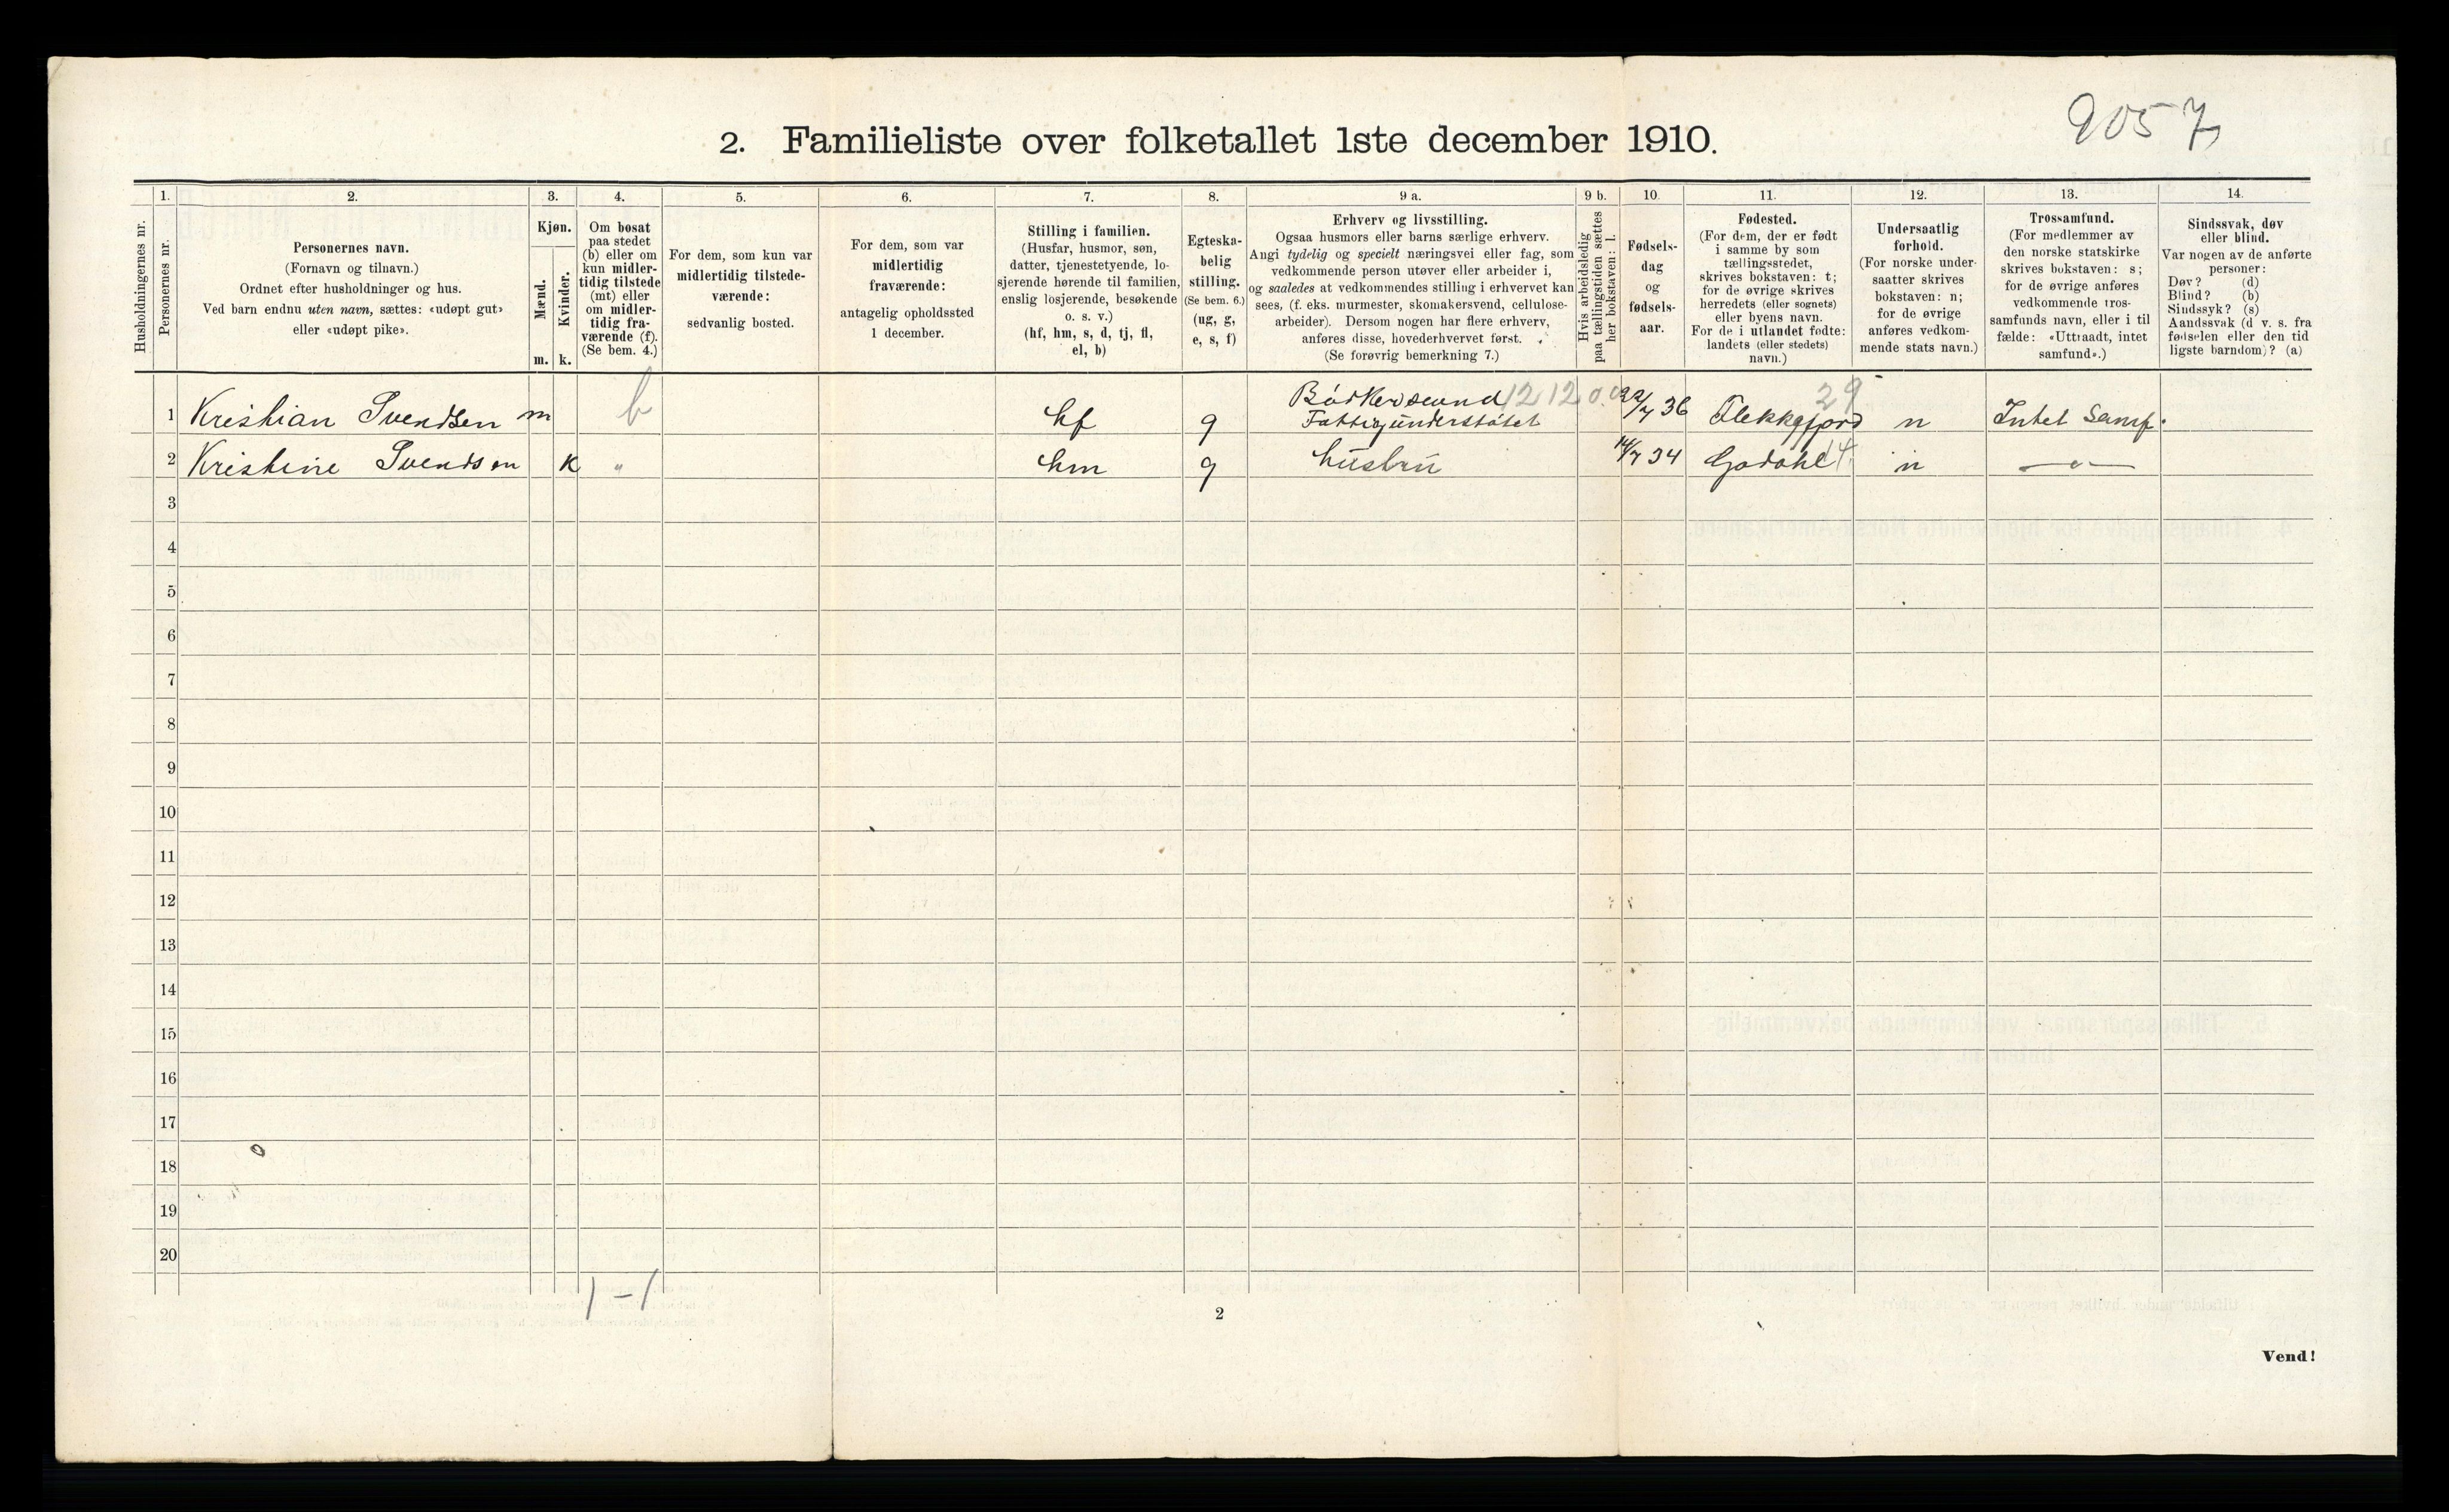 9057
2. Familieliste over folketallet 1ste december 1910.
1. 2. 3. 4. 5. 6. 7. 8. 9 a. 9 b. 10. 11. 12. 13. 14.
Husholdningernes nr.
Personernes nr.
Personernes navn.
(Fornavn og tilnavn.)
Ordnet efter husholdninger og hus.
Ved barn endnu uten navn, sættes: «udøpt gut»
eller «udøpt pike».
Kjøn.
Mænd.
Kvinder.
m. k.
Om bosat
paa stedet
(b) eller om
kun midler-
tidig tilstede
(mt) eller
om midler-
tidig fra-
værende (f).
(Se bem. 4.)
For dem, som kun var
midlertidig tilstede-
værende:
sedvanlig bosted.
For dem, som var
midlertidig
fraværende:
antagelig opholdssted
1 december.
Stilling i familien.
(Husfar, husmor, søn,
datter, tjenestetyende, lo-
sjerende hørende til familien,
enslig losjerende, besøkende
o. s. v.)
(hf, hm, s, d, tj, fl,
el, b)
Egteska-
belig
stilling.
(Se bem. 6.)
(ug, g,
e, s, f)
Erhverv og livsstilling.
Ogsaa husmors eller barns særlige erhverv.
Angi tydelig og specielt næringsvei eller fag, som
vedkommende person utøver eller arbeider i,
og saaledes at vedkommendes stilling i erhvervet kan
sees, (f. eks. murmester, skomakersvend, cellulose-
arbeider). Dersom nogen har flere erhverv,
anføres disse, hovederhvervet først.
(Se forøvrig bemerkning 7.)
Hvis arbeidsledig
paa tællingstiden sættes
her bokstaven: l.
Fødsels-
dag
og
fødsels-
aar.
Fødested.
(For dem, der er født
i samme by som
tællingsstedet,
skrives bokstaven: t;
for de øvrige skrives
herredets (eller sognets)
eller byens navn.
For de i utlandet fødte:
landets (eller stedets)
navn.)
Undersaatlig
forhold.
(For norske under-
saatter skrives
bokstaven: n;
for de øvrige
anføres vedkom-
mende stats navn.)
Trossamfund.
(For medlemmer av
den norske statskirke
skrives bokstaven: s;
for de øvrige anføres
vedkommende tros-
samfunds navn, eller i til
fælde: «Uttraadt, intet
samfund».)
Sindssvak, døv
eller blind.
Var nogen av de anførte
personer:
Døv? (d)
Blind? (b)
Sindssyk? (s)
Aandssvak (d v. s. fra
fødselen eller den tid
ligste barndom)? (a)
1 Kristian Svendsen m b hf g Bødkersvend 1212 22/7 36 Flekkefjord 29 n Intet Samf.
Fattigunderstøtet
2 Kristine Svendsen k " hm g husfru 14/7 34 14 n — " —
3
4
5
6
7
8
9
10
11
12
13
14
15
16
17
18
19
20
1 - 1
2
Vend!